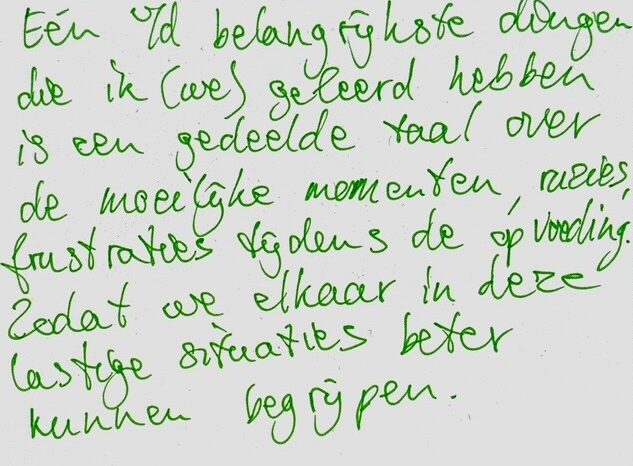 Eén v/d belangrijkste dingen
die ik (we) geleerd hebben
is een gedeelde taal over
de moeilijke momenten, ruzies,
frustraties tijdens de opvoeding.
Zodat we elkaar in deze
lastige situaties beter
kunnen begrijpen.